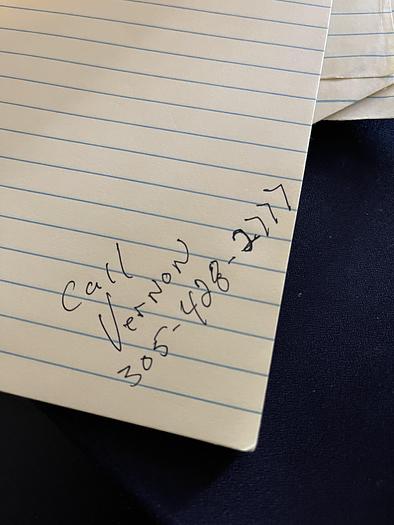 Call
Vernon
305-428-2777